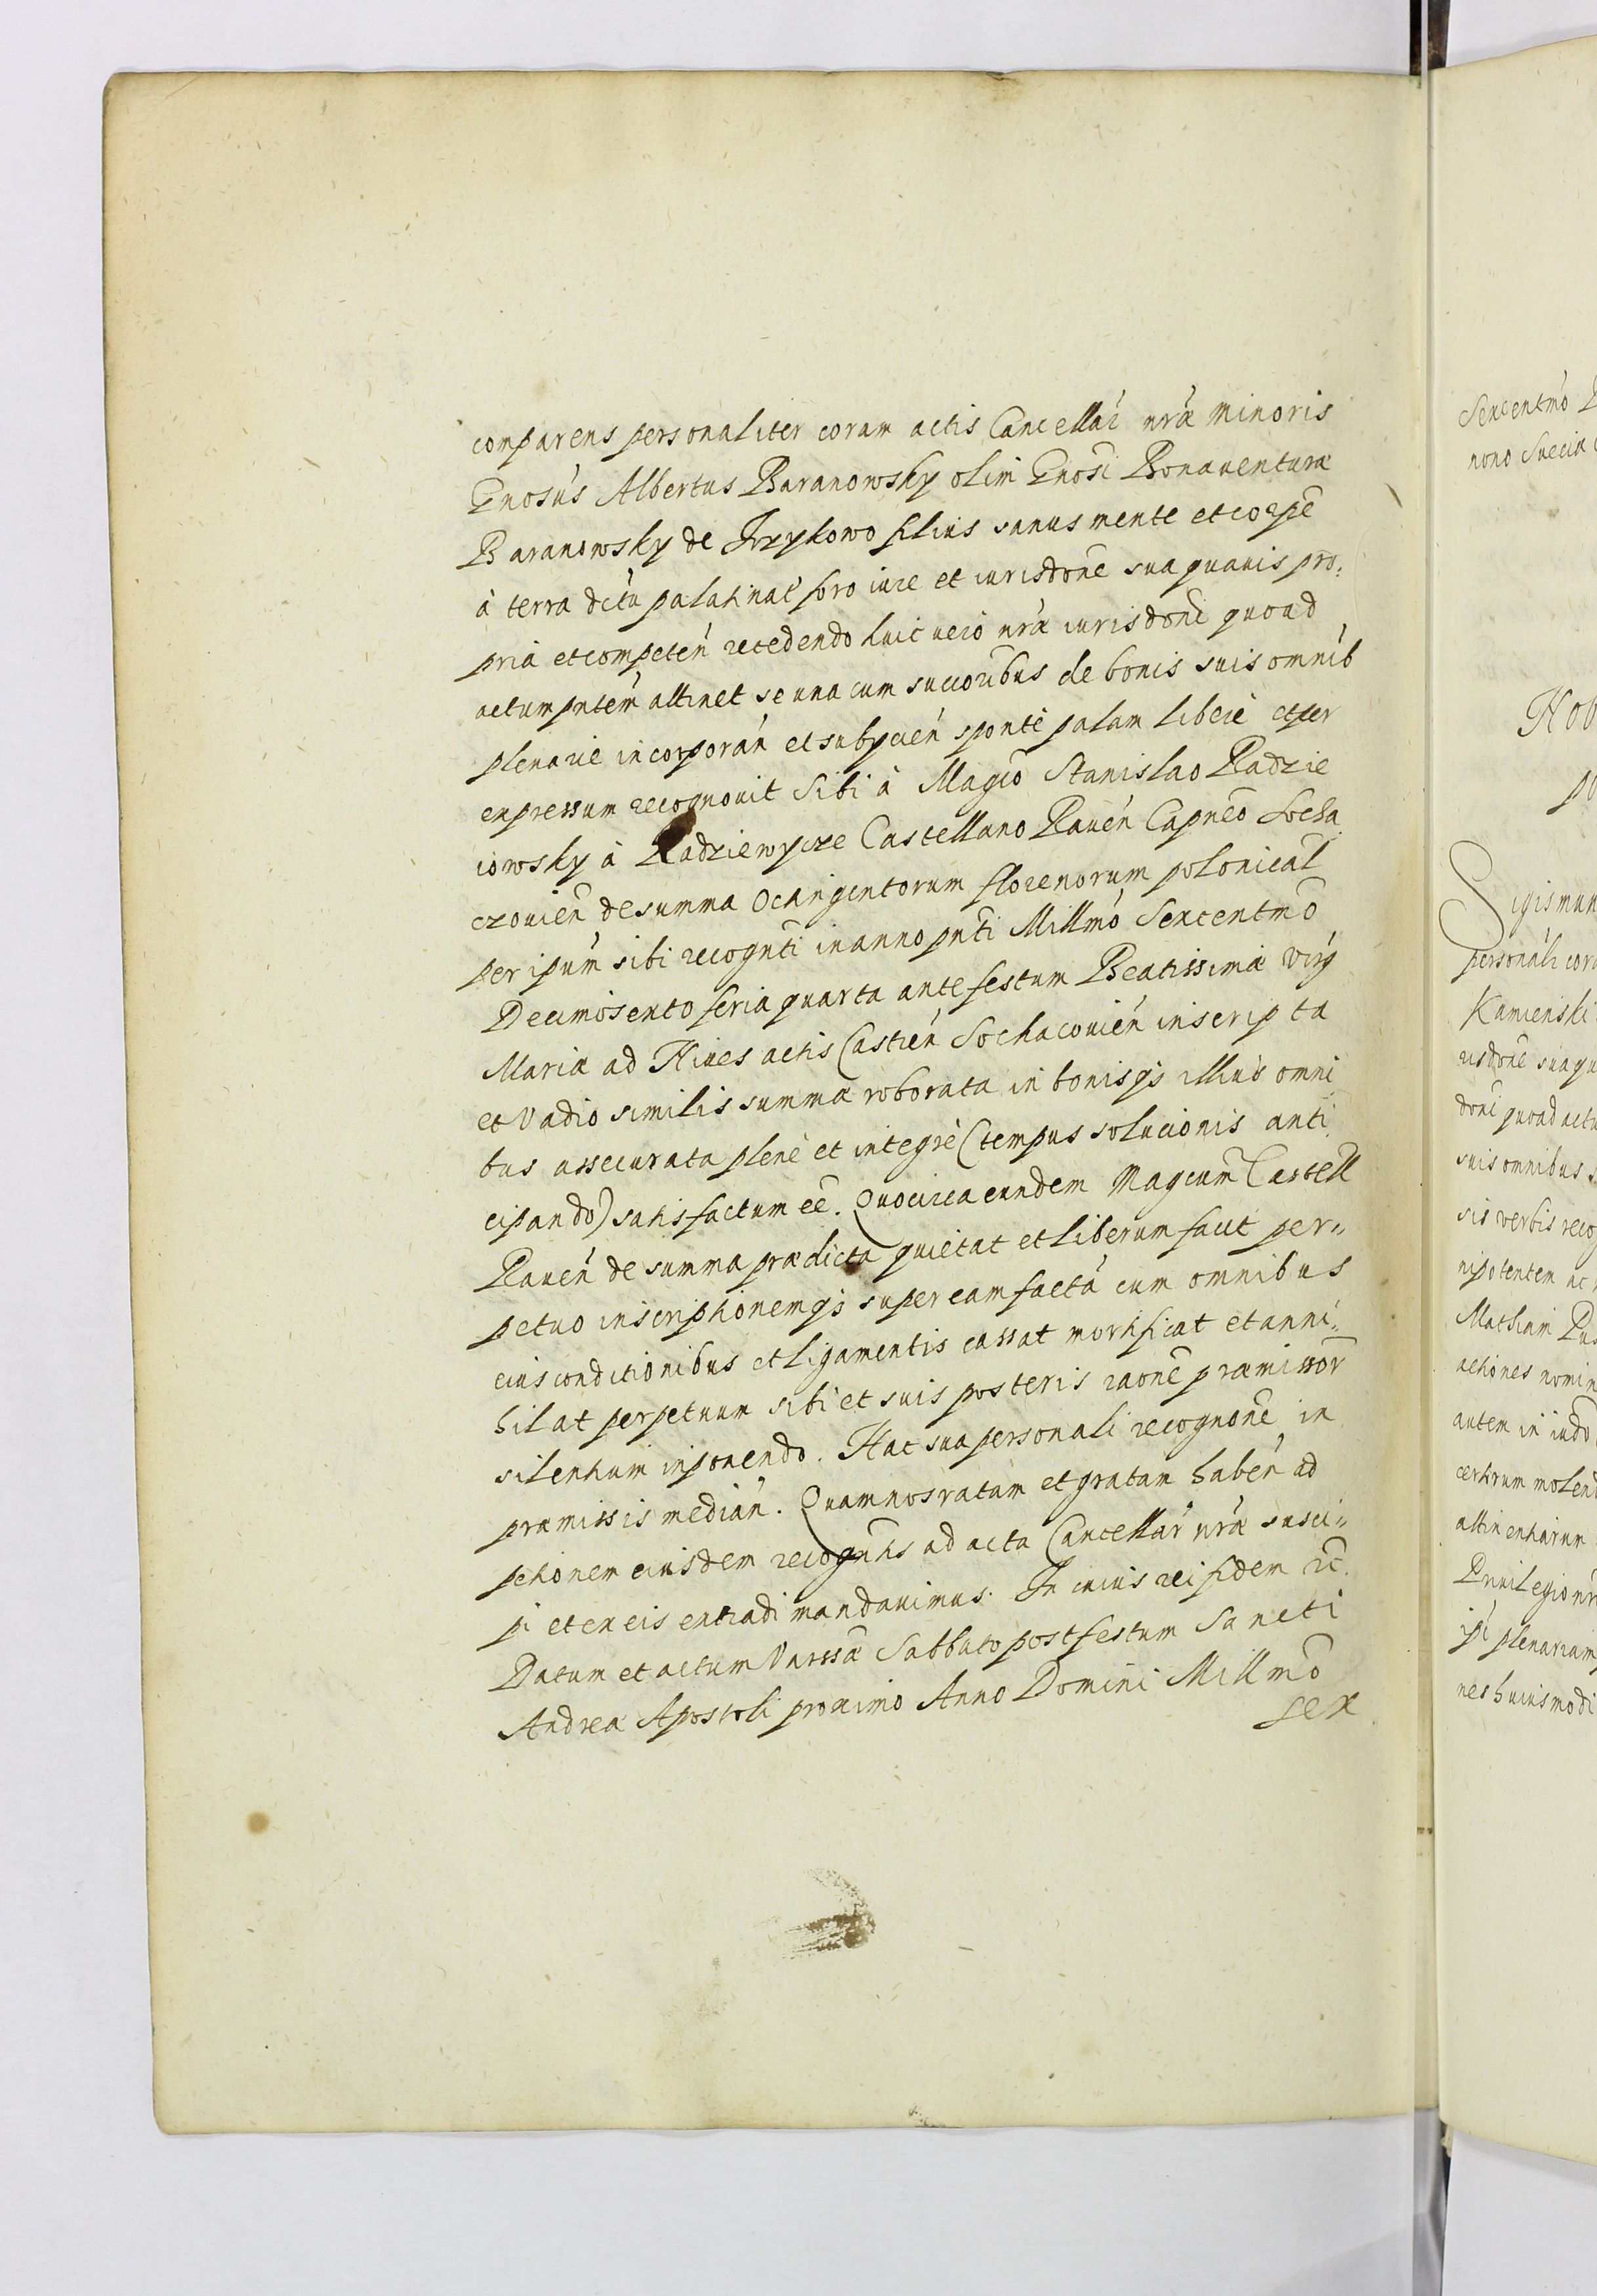 comparens personaliter coram actis Cancellar̃ nr̃æ Minoris
Gnosus Albertus Baranowsky olim Gnosi Bonauenturæ
Baranowsky de Jrzykowo filius sanus mente et corpe
à terra dictu palatinat̃ foro iure et iurisdone sua quauis pro:
pria et competeń recedendo huic vero nrã iurisdoni quoad
actum pntem attinet se una cum succoribus de bonis suis omnib
plenarie incorporań et subycień sponte palam libere et per
expressum recognouit Sibi à Magco Stanislao Radzie
iowsky à Radziewycze Castellano Raueń Capneo Socha
czouień de summa Octingentorum florenorum polonical
per ipum sibi recognti in anno pnti Millmo Sexcentmo
Decimosexto feria quarta ante festum Beatissimæ Virg
Mariæ ad Niues actis Castreń Sochacouień inscripta
et Vadio similis summæ roborata in bonisqs illius omni
bus assecurata plene et integre (tempus solucionis anti
cipando) satisfactum eē. Quocirca eundem Magcum Castell
Raueń de summa prædicta quietat et liberum facit per„
petuo inscriptionemqs super eam factā cum omnibus
eius conditionibus et ligamentis cassat mortificat et anni„
hilat perpetuum sibi et suis posteris raone præmissor
silentium inponendo. Hac sua personali recognone in
præmissis mediań. Quam nos ratam et gratam habeń ad
ptionem eiusdem recogntis ad acta Cancellar̃ nræ susci„
pi et ex eis extradi mandauimus. In cuius rei fidem rc.
Datum et actum Varssæ Sabbato post festum Sancti
Andreæ Apostoli proximo Anno Domini Millmo
sex
Sexcentmo
nono Sueciæ
Nob
Sigismun
personali cora
Kamienski
risdone sua qu
doni quoad actu
suis omnibus s
sis verbis reco
nipotentem ac
Mathiam
actiones nomin
autem in iudo
certrum molend
attinentiarum
Priuilegio nr
ipi plenariam
nes huiusmodi